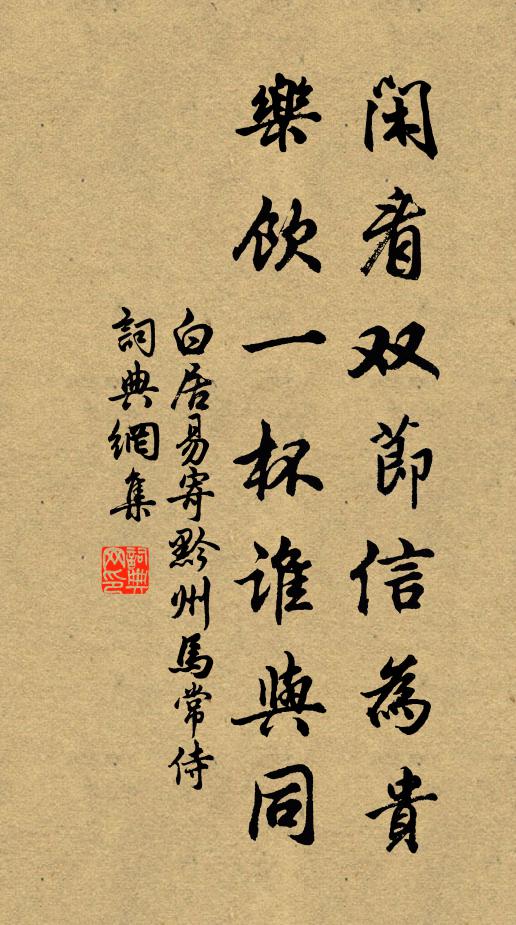 闲看双節信為貴
樂飲一杯誰與同
白居易寄黔州馬常侍
詞典網集
詞典网印